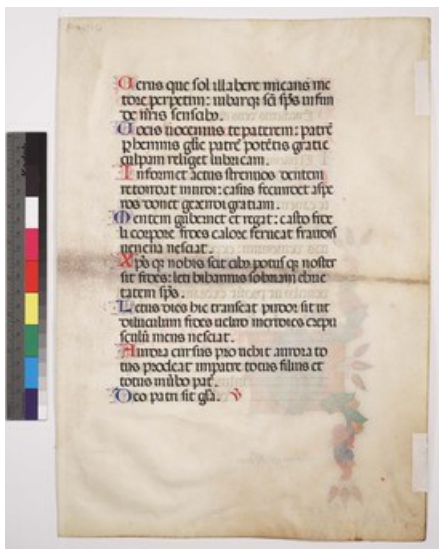 Uerus que sol illabere micans ni
tore perpetim: iubarqȝ sc̄i sp̄s infun
de nr̄is sensibꝰ.
Uocis uocemus te patrem: patrē
phennis glīe patrē potētis gratie
culpam religet lubricam.
Informet actus strennos dentem
retondat inuidi: casus secundet aspe
ros donet gerendi gratiam.
Mentem gubernet et regat: casto fide
li corpore fides calore ferueat fraudis
uenena nesciat.
Xp̄s qȝ nobis sit cibꝰ potus qȝ noster
sit fides: leti bibamus sobriam ebrie
tatem sp̄s.
Letus dies hic transeat pudor sit ut
diluculum fides uelud meridies crepu
sculū mens nesciat.
Aurora cursus prouehit aurora to
tus prodeat inpatre totus filius et
totus inūbo pat̄.
Deo patri sit gl̄a.